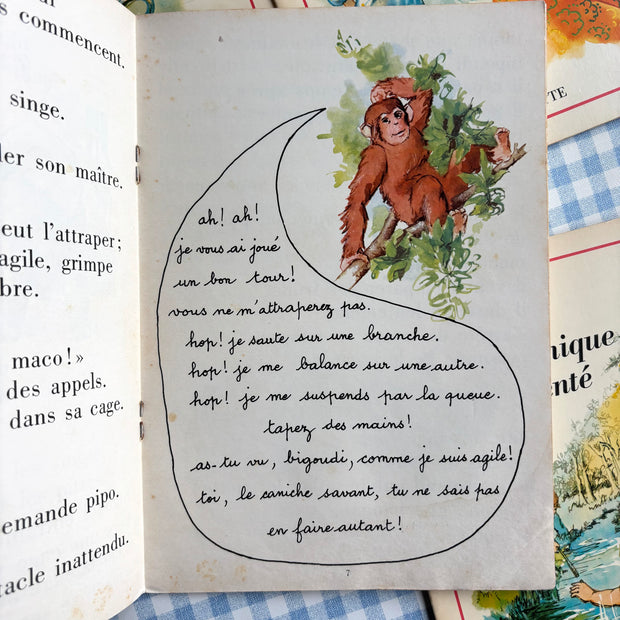 commencent.
singe.
son maître.
l'attraper;
agile, grimpe
maco!»
des appels.
dans sa cage.
pipo.
inattendu.
ah! ah!
je vous ai joué
un bon tour!
vous ne m'attraperez pas.
hop! je saute sur une branche.
hop! je me balance sur une autre.
hop! je me suspends par la queue.
tapez des mains!
as-tu vu, bigoudi, comme je suis agile!
toi, le caniche savant, tu ne sais pas
en faire autant!
7